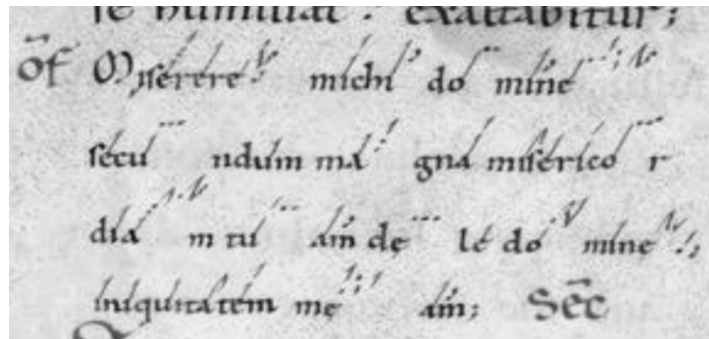 se humiliat. exaltabitur;
of Miserere michi domine
secu ndum ma gna misericor r
dia m tu am dele domine
iniquitatem me am; Sec